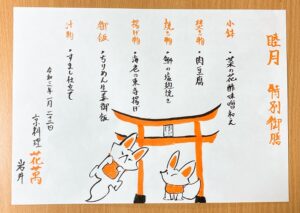 睦月 特別御膳
小鉢
・菜の花酢味噌和え
焚き物
・肉豆腐
焼き物
・鰤の塩麹焼き
揚げ物
・海老の東寺揚げ
御飯
・ちりめん生姜御飯
汁物
・すまし仕立て
令和三年一月二十三日
京料理 花萬
岩井